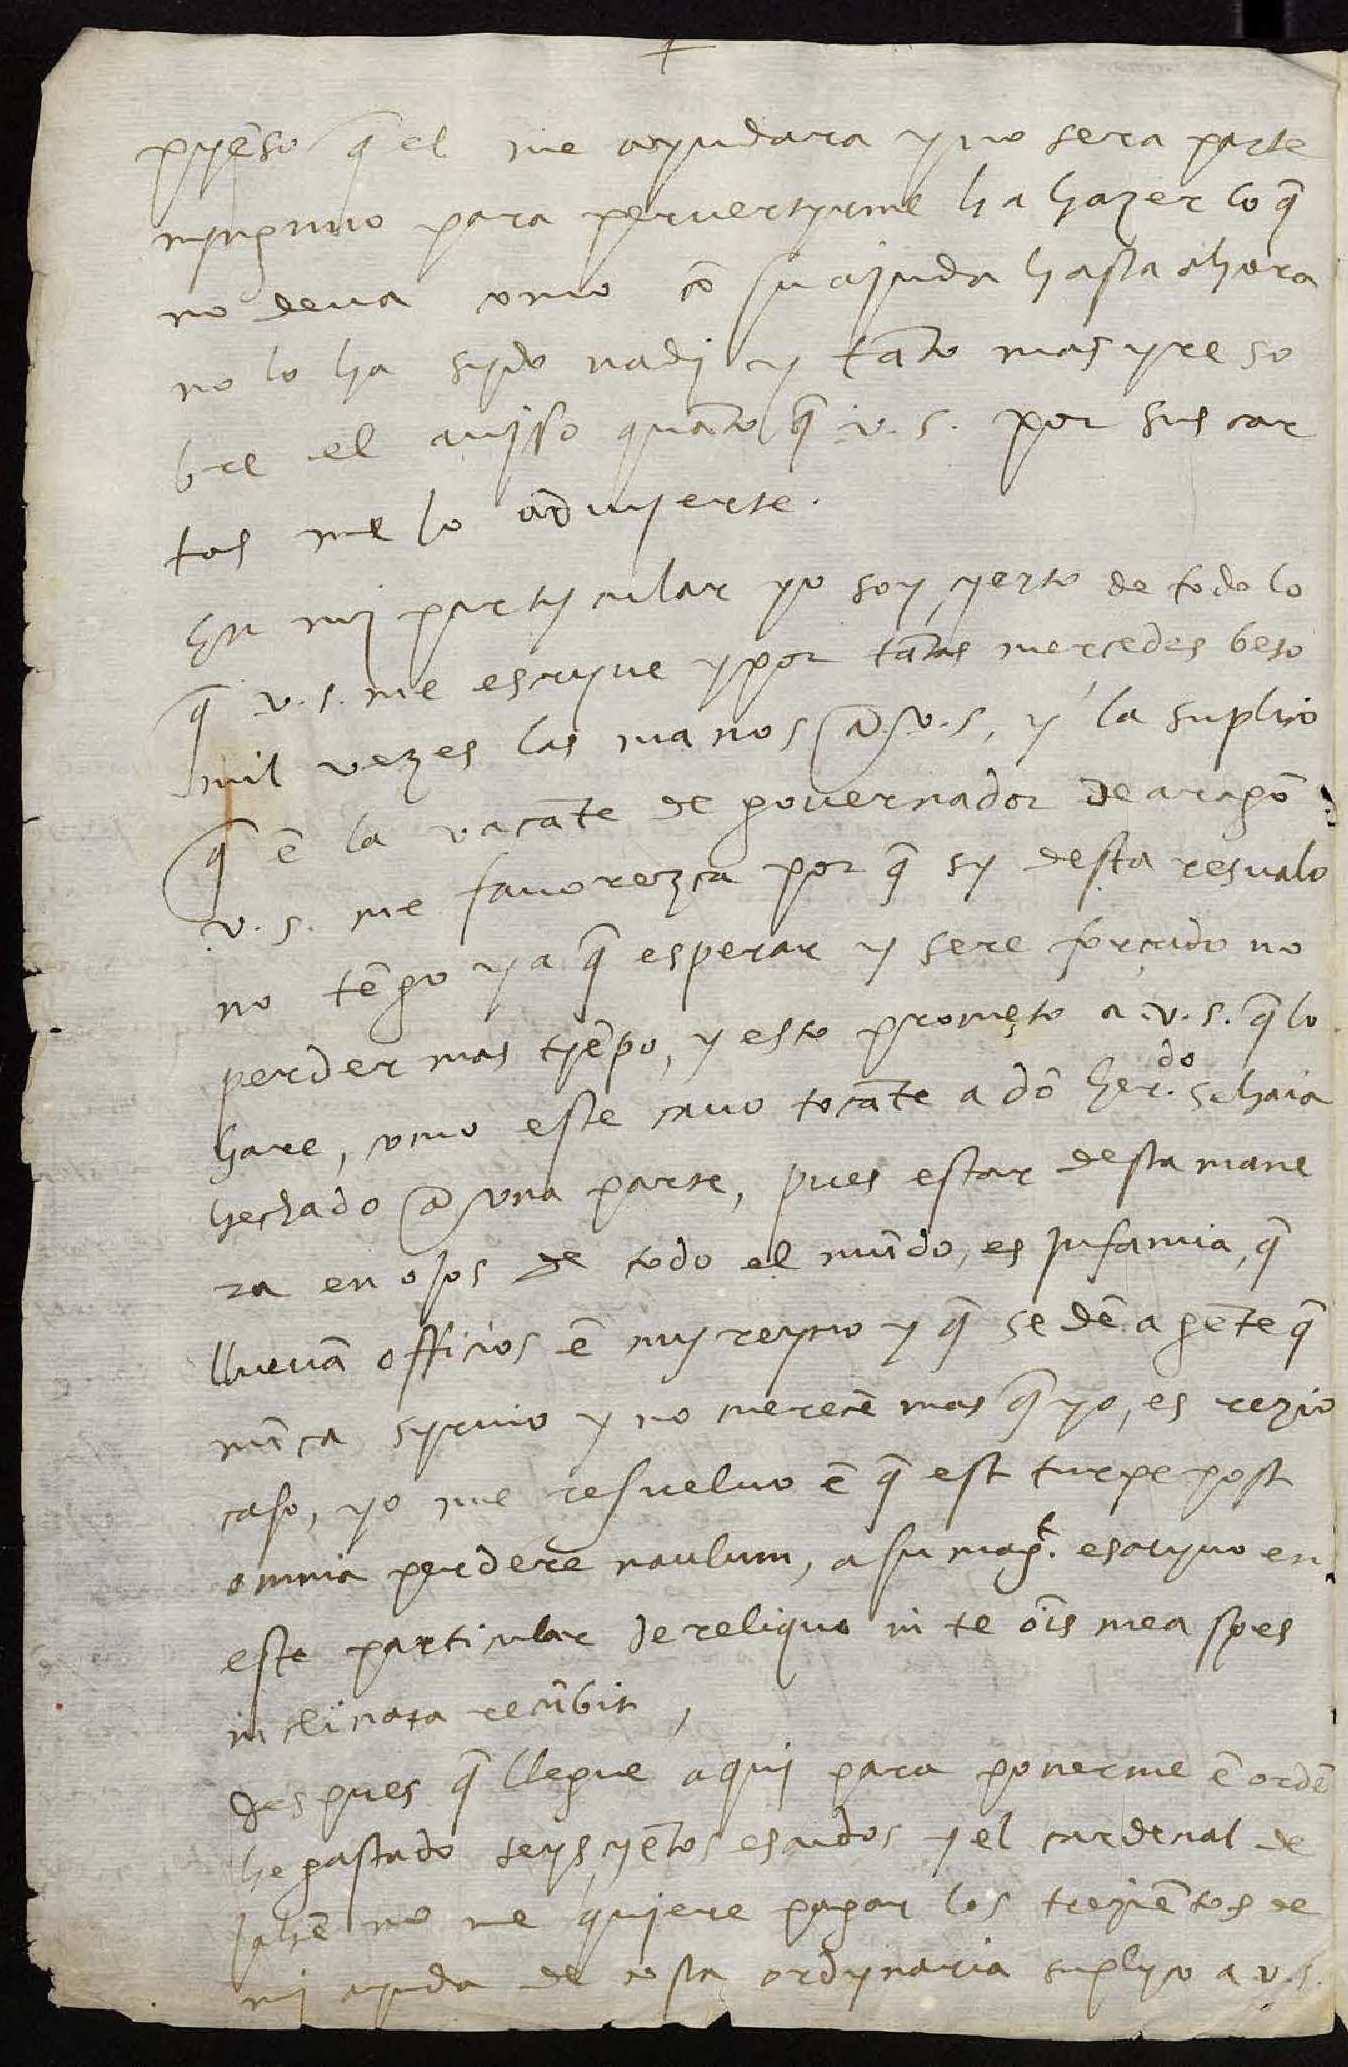 +
pyēso q̄ el me ayudara y no sera parte
nynguno para pervertyrme ha hazer lo q̄
no deva como cō su ajuda hasta ahora
no lo ha sydo nadj y tāto mas yre so
bre el avjsso quāto q̄ v. s. por sus car
tas me lo advyerte.
En mj partycular yo soy cyerto de todo lo
q̄ v. s. me escryve y por tātas mercedes beso
mil vezes las manos a v. s, y la suplico
q̄ ē la vacāte de governador de aragō
v. s. me favorezca por q̄ sy desta resvalo
no tēgo ya q̄ esperar y sere forcado no
perder mas tyēpo, y esto prometo a v. s. q̄ lo
hare, como este cavo tocāte a dō her.do se haia
hechado a una parte, pues estar desta mane
ra en ojos de todo el mūdo, es jnfamia, q̄
lluevā officios ē my reyno y q̄ se dē a gēte q̄
nūca syrvio y no merecē mas q̄ yo, es rezio
caso, yo me resuelvo ē q̄ est turpe post
omnia perdere naulum, a su mag.t escryvo en
este particular de reliquo in te oīs mea spes
inclinata recūbit,
despues q̄ llegue aquj para ponerme ē ordē
he gastado seyscyētos escudos y el cardenal de
jahē no me qujere pagar los trezientos de
mj ayuda de costa ordynaria suplyco a v. s.